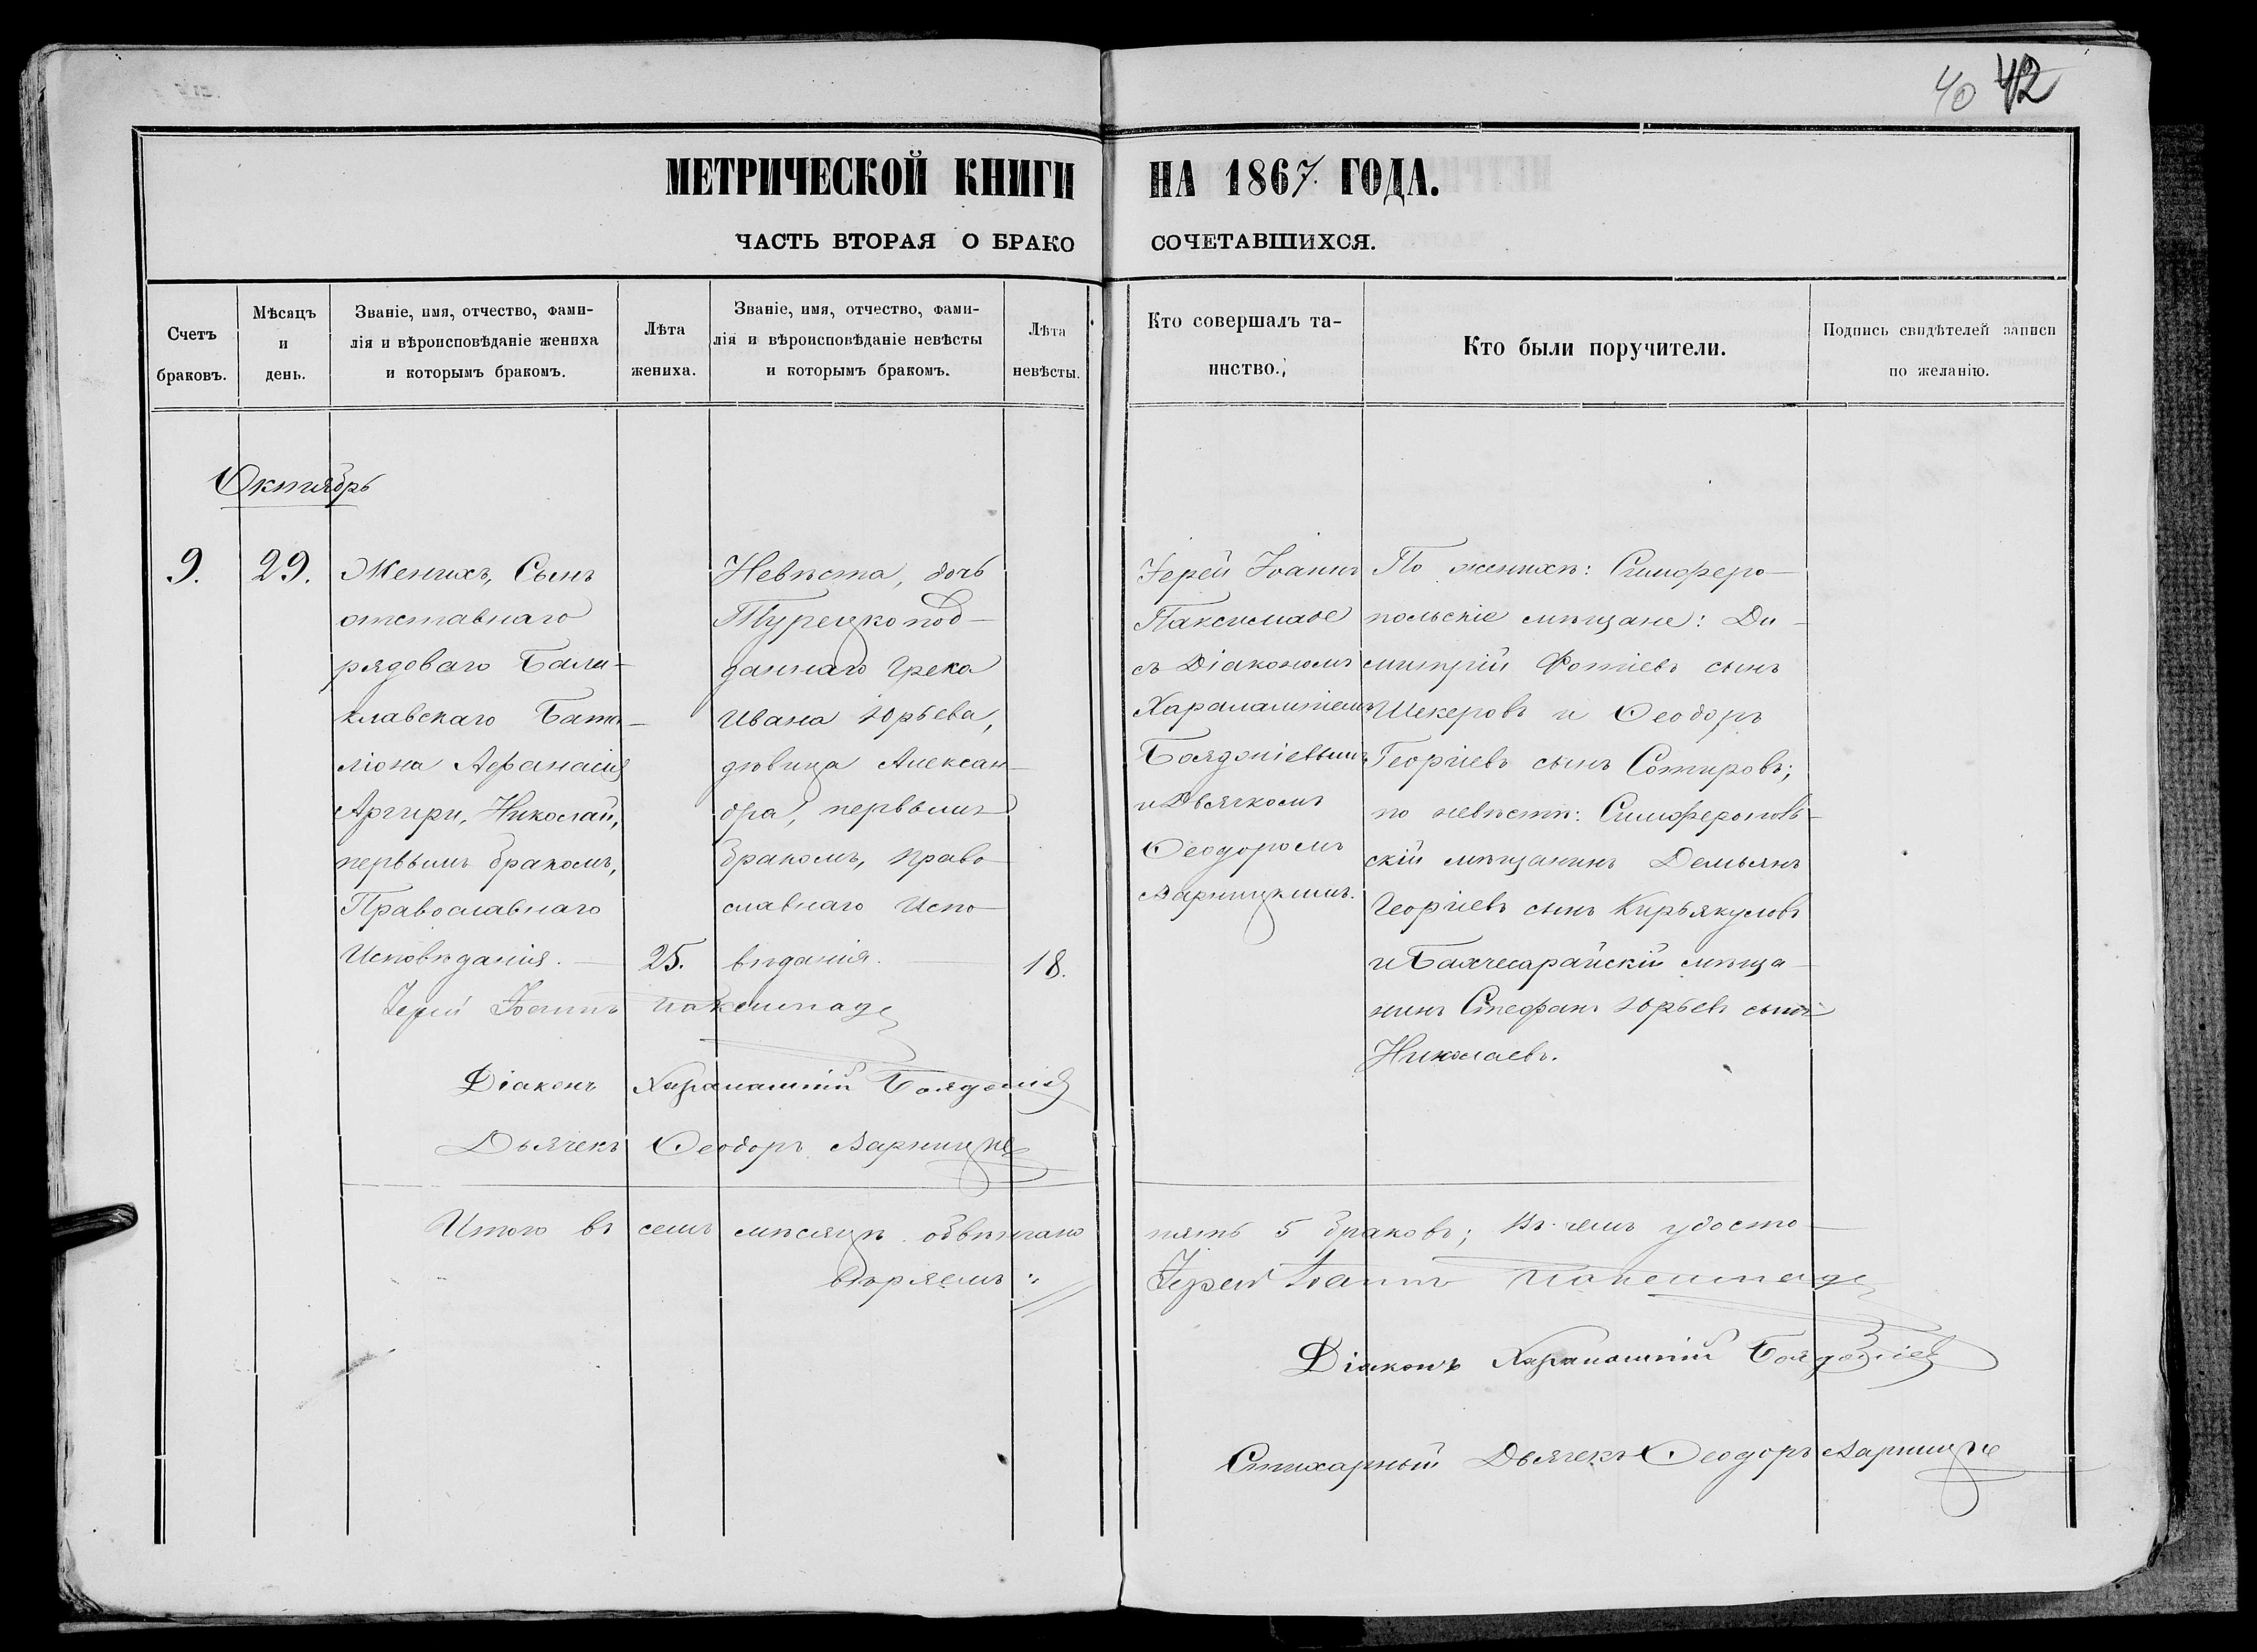 40 42
МЕТРИЧЕСКОЙ КНИГИ НА 1867 ГОДА.
ЧАСТЬ ВТОРАЯ О БРАКОСОЧЕТАВШИХСЯ.
Счетъ
браковъ.
Мѣсяцъ
и
день.
Званіе, имя, отчество, фами-
лія и вѣроисповѣданіе жениха
и которымъ бракомъ.
Лѣта
жениха.
Званіе, имя, отчество, фами-
лія и вѣроисповѣданіе невѣсты
и которымъ бракомъ.
Лѣта
невѣсты.
Кто совершалъ та-
инство.
Кто были поручители.
Подпись свидѣтелей записи
по желанію.
Октябрь
9.
29.
Женихъ, Сынъ
отставнаго
рядоваго Бала-
клавскаго Бата-
ліона Афанасія
Аргири, Николай,
первымъ бракомъ,
Православнаго
Исповѣданія.
25.
Невѣста, дочь
Турецко под-
даннаго Грека
Ивана Юрьева,
дѣвица Алексан-
дра, первымъ
бракомъ, Право-
славнаго Испо-
вѣданія.
18.
Іерей Іоаннъ
Паксимаде
съ Діакономъ
Харалампіемъ
Бояджіевымъ
и Дьячкомъ
Ѳеодоромъ
Варницкимъ.
По женихѣ: Симферо-
польскіе мѣщане: Ди-
митрій Фотіевъ сынъ
Шекеровъ и Ѳеодоръ
Георгіевъ сынъ Сотировъ;
по невѣстѣ: Симферополь-
скій мѣщанинъ Демьянъ
Георгіевъ сынъ Кирьякуловъ
и Бахчесарайскій мѣща-
нинъ Стефанъ Юрьевъ сынъ
Николаевъ.
Іерей Іоаннъ Паксимаде
Діаконъ Харалампій Бояджіевъ
Дьячекъ Ѳеодоръ Варницкій
Итого въ семъ мѣсяцѣ обвѣнчано пять 5 браковъ; въ чемъ удосто-
вѣряемъ:
Іерей Іоаннъ Паксимаде
Діаконъ Харалампій Бояджіевъ
Стихарный Дьячекъ Ѳеодоръ Варницкій